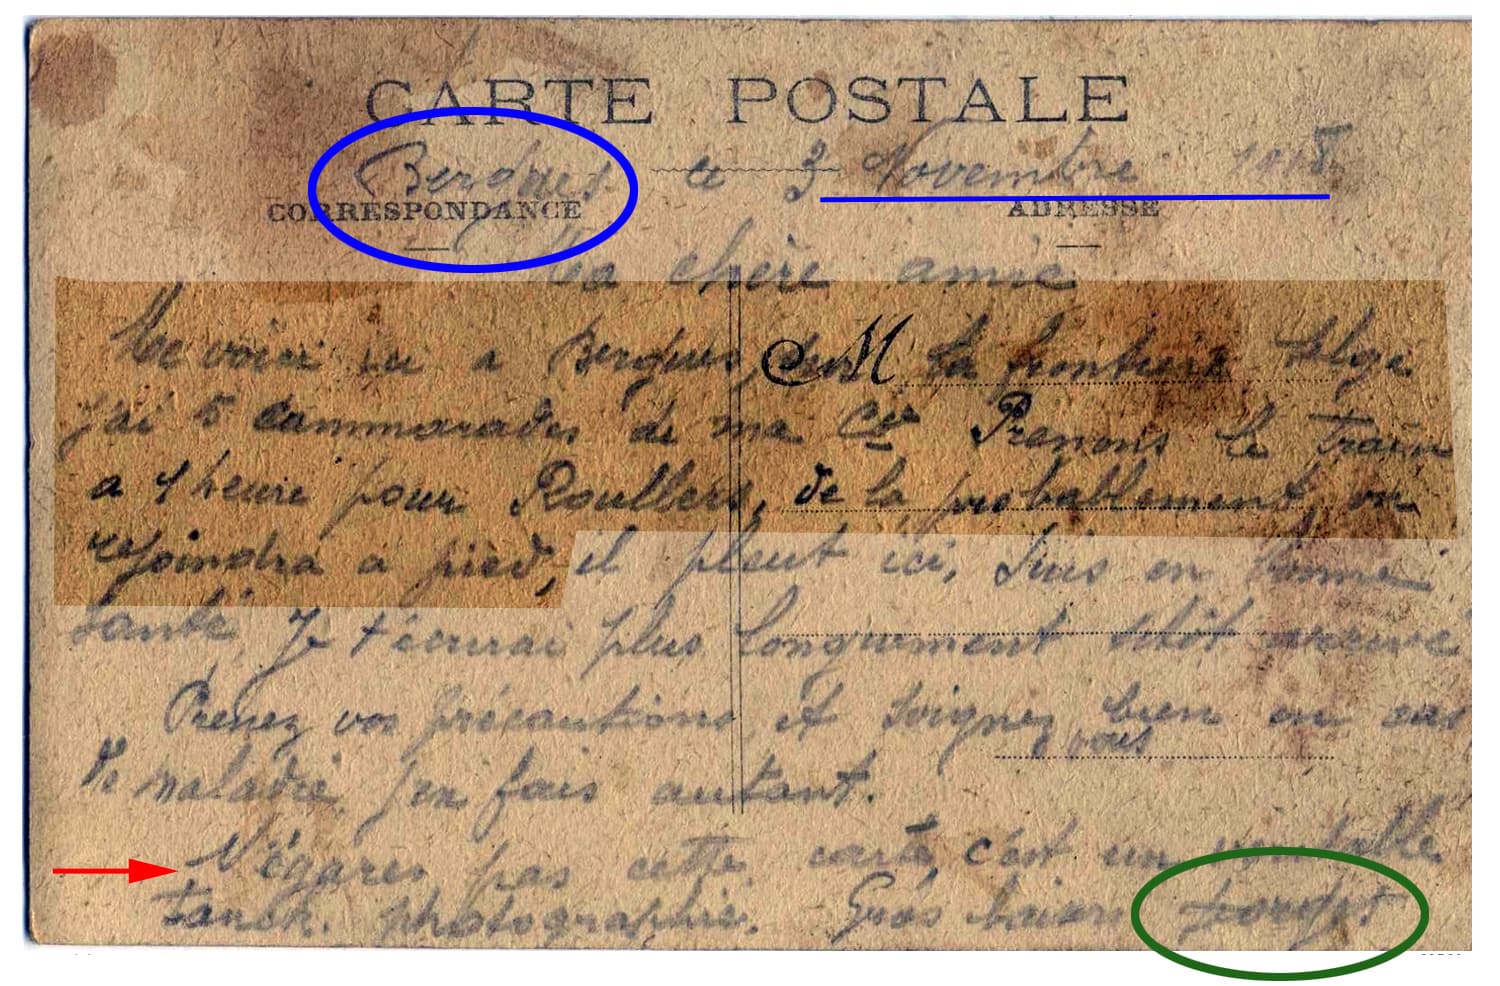 CARTE POSTALE
Bergues le 3 Novembre 1918
CORRESPONDANCE ADRESSE
Ma chère amie
M
Me voici ici a Bergues, sur la frontière Belge
j'ai 5 cammarades de ma Cie Prenons le train
a 1 heure pour Roullers, de la probablement, on
rejoindra a pied, il pleut ici, Suis en bonne
santé, Je t'écrirai plus longuement sitôt arrivé
Prenez vos précautions, et soignez bien en cas
vous
de maladie, j'en fais autant.
N'égares pas cette carte, c'est un véritable
tanck. photographié. Gros baisers